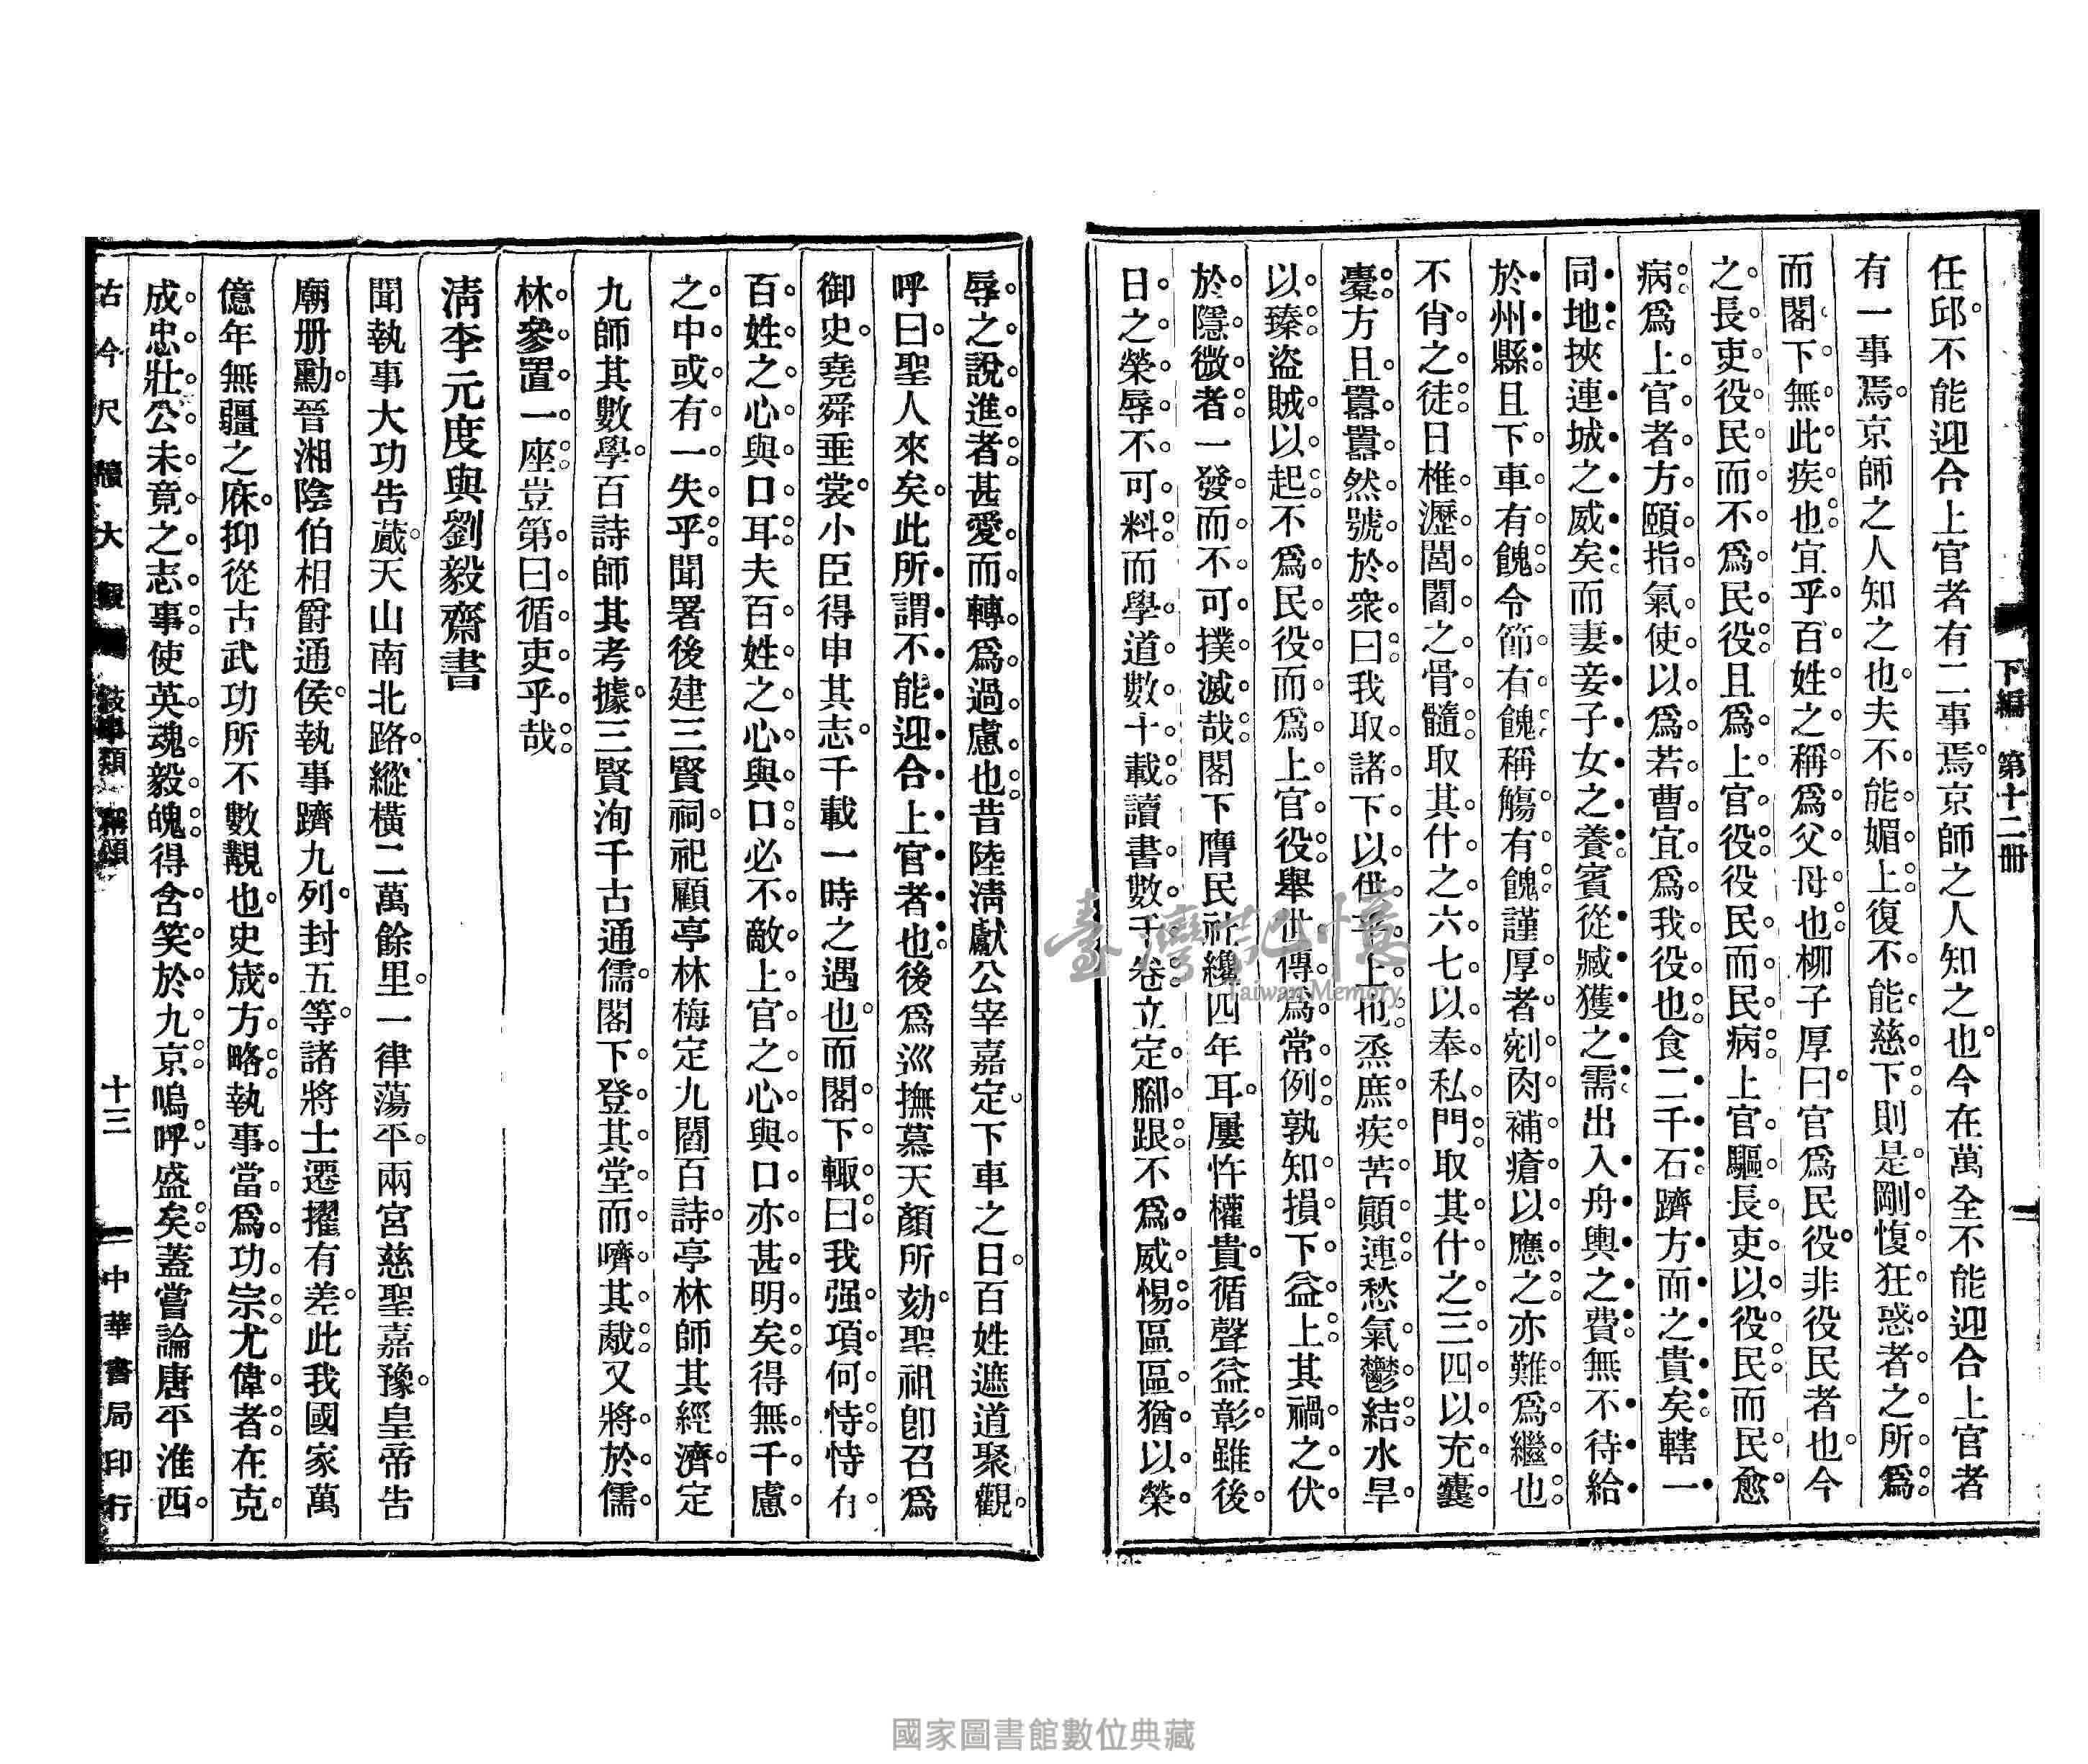 下編　第十二冊
任邱不能迎合上官者有二事焉京師之人知之也今在萬全不能迎合上官者
有一事焉京師之人知之也夫不能媚上復不能慈下則是剛愎狂惑者之所爲
而閣下無此疾也宜乎百姓之稱爲父母也柳子厚曰官爲民役非役民者也今
之長吏役民而不爲民役且爲上官役役民而民病上官驅長吏以役民而民愈
病爲上官者方頤指氣使以爲若曹宜爲我役也食二千石躋方面之貴矣轄一
同地挾連城之威矣而妻妾子女之養賓從臧獲之需出入舟輿之費無不待給
於州縣且下車有餽令節有餽稱觴有餽謹厚者剜肉補瘡以應之亦難爲繼也
不肖之徒日椎瀝閭閻之骨髓取其什之六七以奉私門取其什之三四以充囊
橐方且囂囂然號於衆曰我取諸下以供上也烝庶疾苦顚連愁氣鬱結水旱
以臻盜賊以起不爲民役而爲上官役舉世傳爲常例孰知損下益上其禍之伏
於隱微者一發而不可撲滅哉閣下膺民社纔四年耳屢忤權貴循聲益彰雖後
日之榮辱不可料而學道數十載讀書數千卷立定腳跟不爲威惕區區猶以榮
辱之說進者甚愛而轉爲過慮也昔陸淸獻公宰嘉定下車之日百姓遮道聚觀
呼曰聖人來矣此所謂不能迎合上官者也後爲巡撫慕天顏所劾聖祖卽召爲
御史堯舜垂裳小臣得申其志千載一時之遇也而閣下輒曰我强項何恃恃有
百姓之心與口耳夫百姓之心與口必不敵上官之心與口亦甚明矣得無千慮
之中或有一失乎聞署後建三賢祠祀顧亭林梅定九閻百詩亭林師其經濟定
九師其數學百詩師其考據三賢洵千古通儒閣下登其堂而嚌其胾又將於儒
林參置一座豈第曰循吏乎哉
淸李元度與劉毅齋書
聞執事大功告蕆天山南北路縱橫二萬餘里一律蕩平兩宮慈聖嘉豫皇帝告
廟册勳晉湘陰伯相爵通侯執事躋九列封五等諸將士遷擢有差此我國家萬
億年無疆之庥抑從古武功所不數覯也史宬方略執事當爲功宗尤偉者在克
成忠壯公未竟之志事使英魂毅魄得含笑於九京嗚呼盛矣蓋嘗論唐平淮西
古今尺牘大觀　技事類　稱頌　十三　中華書局印行
臺灣記憶
Taiwan Memory
國家圖書館數位典藏